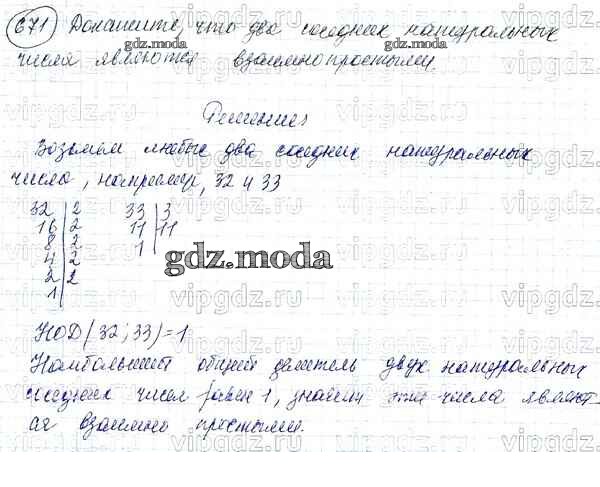 671 Докажите, что два соседних натуральных
числа являются взаимнопростыми.
Решение,
Возьмем любые два соседних натуральных
числа, например, 32 и 33
32 | 2 33 | 3
16 | 2 11 | 11
8 | 2 1 |
4 | 2
2 | 2
1 |
gdz.moda
НОД (32; 33) = 1
Наибольший общий делитель двух натуральных
соседних чисел равен 1, значит эти числа являют-
ся взаимно простыми.
vipgdz.ru